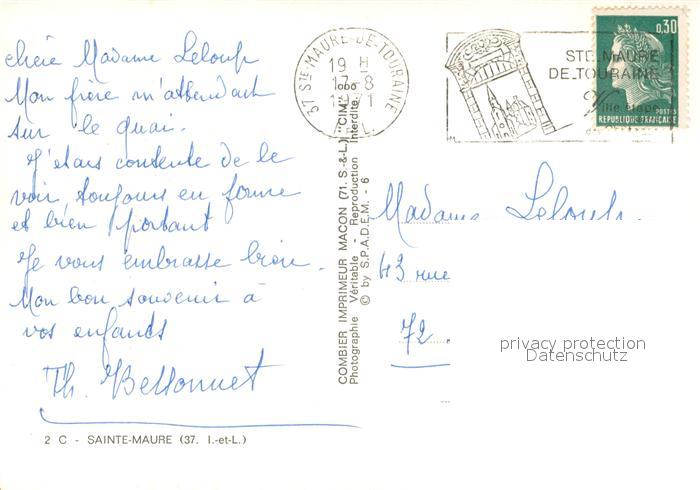 chère Madame Leloup
Mon frère m'attendait
sur le quai.
J'étais contente de le
voir, toujours en forme
et bien portant
Je vous embrasse bien.
Mon bon souvenir à
vos enfants
Th. Bessonnet
2 C - SAINTE-MAURE (37. I.-et-L.)
COMBIER IMPRIMEUR MACON (71. S.-&-L.) "CIM"
Photographie Véritable - Reproduction Interdite.
© by S.P.A.D.E.M. - 6
37 STE-MAURE-DE-TOURAINE
19 H
17-8
STE MAURE
DE TOURAINE
Ville étape
0,30
POSTES
REPUBLIQUE FRANÇAISE
Madame Leloup.
43 rue
72
privacy protection
Datenschutz